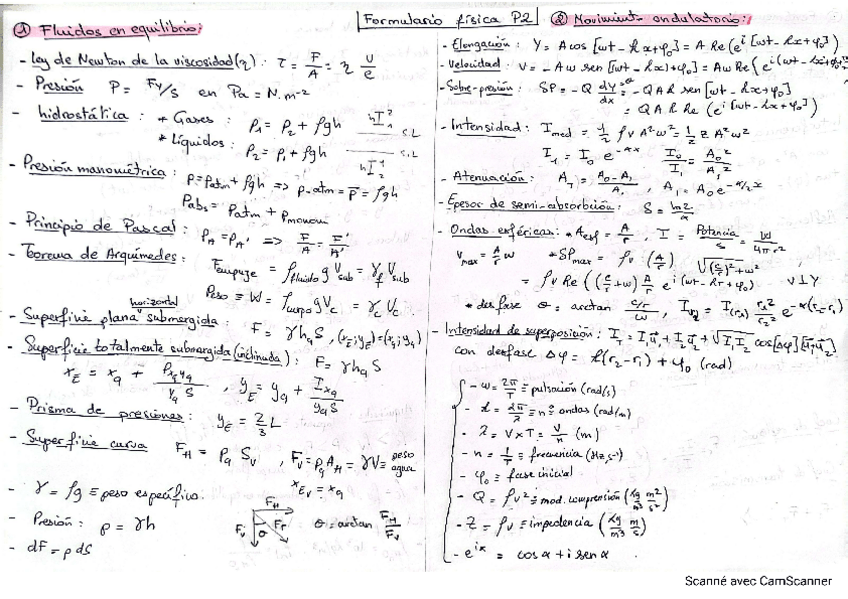 Formulario física P2
① Fluidos en equilibrio:
- Ley de Newton de la viscosidad (η): τ = F/A = η v/e
- Presión P = F⊥/S en Pa = N·m⁻²
- hidrostática: * Gases: P₁ = P₂ + ρgh
* Líquidos: P₂ = P₁ + ρgh
- Presión manométrica: P = Patm + ρgh => P - atm = P̄ = ρgh
Pabs = Patm + Pmanom
- Principio de Pascal: P_A = P_A' => F/A = F'/A'
- Teorema de Arquímedes: Fempuje = ρfluido g Vsub = γf Vsub
Peso = W = ρcuerpo g Vc = γc Vc
- Superficie plana horizontal submergida: F = γ hg S, (xE; yE) = (xg; yg)
- Superficie totalmente submergida (inclinada): F = γ hg S
xE = xg + Pxgyg / yg S, yE = yg + Ixg / yg S
- Prisma de presiones: yE = 2/3 L
- Superficie curva FH = Pg Sv, Fv = pg AH = γV = peso agua
xEv = xg
- γ = ρg ≡ peso específico:
- Presión: p = γh
FH
Fv θ Fr θ = arctan FH/Fv
- dF = p dS
② Movimiento ondulatorio:
- Elongación: Y = A cos [wt - kx + φ₀] = A Re (e^i[wt - kx + φ₀])
- Velocidad: V = -Aw sen [wt - kx + φ₀] = Aw Re {e^i(wt - kx + φ₀
- Sobre-presión: SP = -Q dy/dx = -QAk sen [wt - kx + φ₀]
= QAk Re (e^i[wt - kx + φ₀])
- Intensidad: Imed = 1/2 ρv A²w² = 1/2 z A²w²
I₁ = I₀ e^-αx I₀/I₁ = A₀²/A₁²
- Atenuación: A₀ - A₁ / A₁, A₁ = A₀ e^-α/2 x
- Epesor de semi-absorbción: S = ln2/α
- Ondas esféricas: * Aesf = A/r, I = Potencia/s = W/4πr²
Vmax = A/r w * SPmax = ρv (A/r) √((c/r)² + w²
= ρv Re ((c/r + w) A/r e^i(wt - kr + φ₀) v⊥y
* desfase θ = arctan c/r / w, I(r₂) = I(r₁) r₁²/r₂² e^-α(r₂-r₁)
- Intensidad de superposición: IT = I₁u⃗₁ + I₂u⃗₂ + √I₁I₂ cos[Δφ][u⃗₁u⃗₂]
con desfase Δφ = k(r₂ - r₁) + φ₀ (rad)
- w = 2π/T ≡ pulsación (rad/s)
- k = 2π/λ ≡ nº ondas (rad/m)
- λ = V × T = V/n (m)
- n = 1/T ≡ frecuencia (Hz, s⁻¹)
- φ₀ ≡ fase inicial
- Q = ρv² ≡ mod. comprensión (kg/m³ m²/s²)
- Z = ρv ≡ impedencia (kg/m³ m/s)
- e^iα = cos α + i sen α
Scanné avec CamScanner